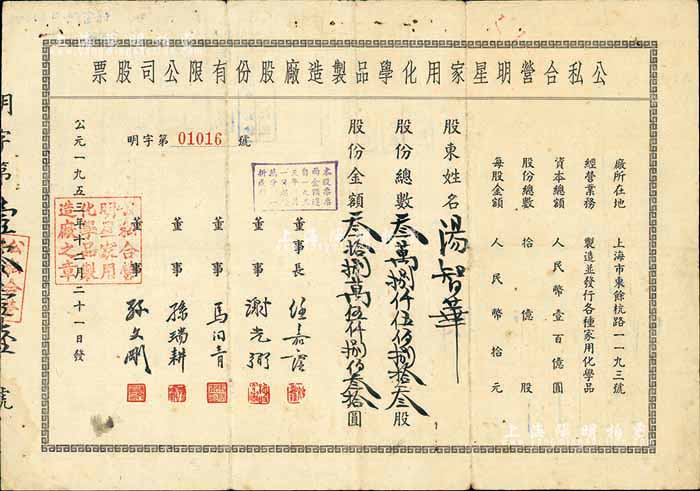 公私合營明星家用化學品製造廠股份有限公司股票
廠所在地 上海市東餘杭路一一九三號
經營業務 製造並發行各種家用化學品
資本總額 人民幣壹百億圓
股份總數 拾億股
每股金額 人民幣拾元
股東姓名 湯智華
股份總數 叁萬捌仟伍佰捌拾叁股
股份金額 叁拾捌萬伍仟捌佰叁拾圓
明字第 01016 號
董事長
董事 謝光弼
董事 馬伯青
董事 孫瑞耕
董事 孫文剛
公元一九五三年十二月二十一日發
公私合營
明星家用
化學品製
造廠之章
明字第
號